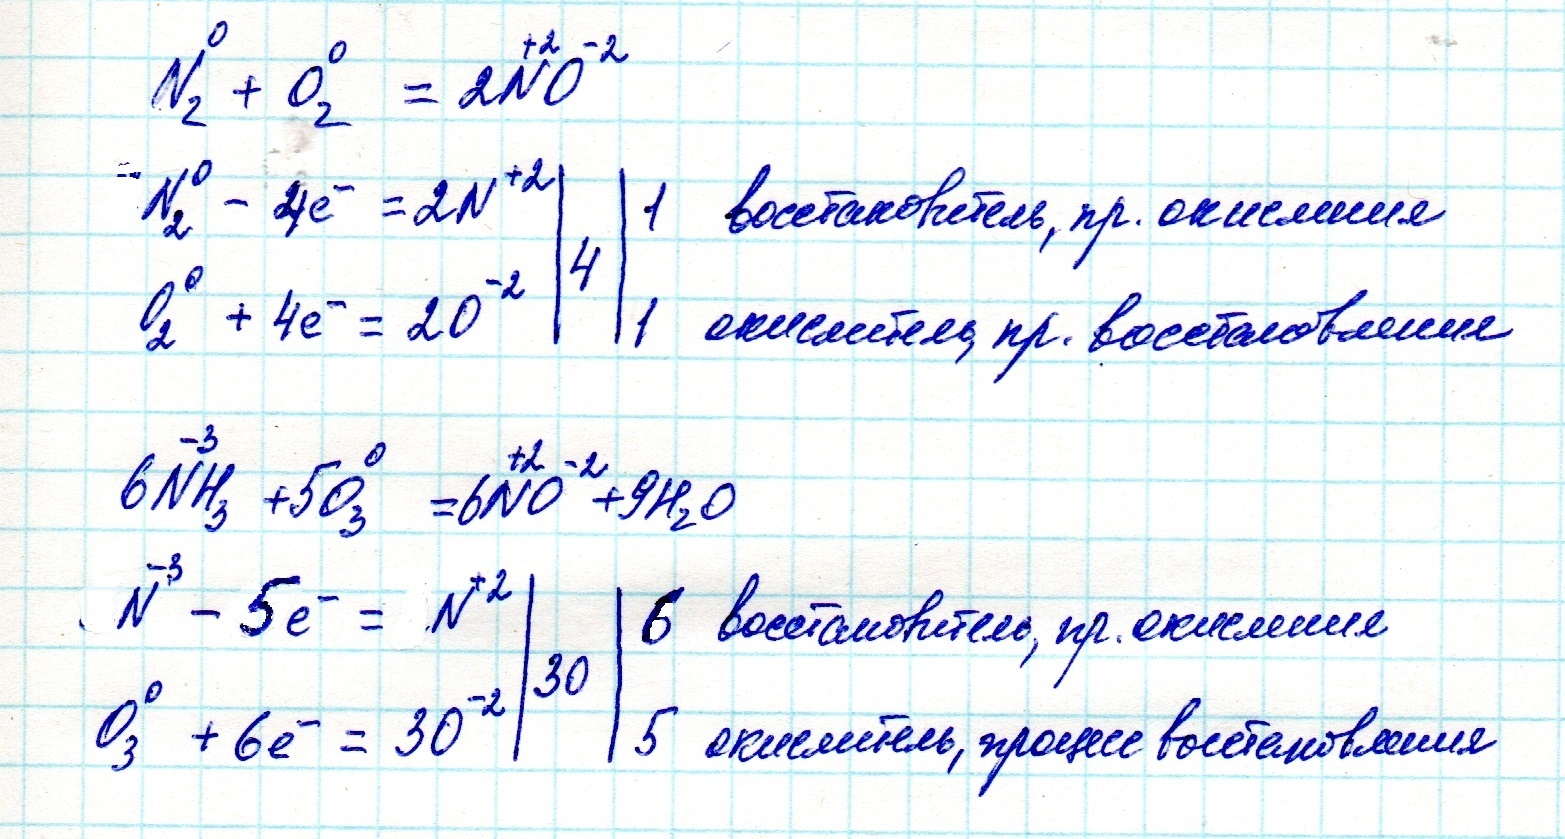 N₂⁰ + O₂⁰ = 2N⁺²O⁻²
N₂⁰ - 4e⁻ = 2N⁺² | 4 | 1 восстановитель, пр. окисления
O₂⁰ + 4e⁻ = 2O⁻² | 1 окислитель, пр. восстановления
6N⁻³H₃ + 5O₃⁰ = 6N⁺²O⁻² + 9H₂O
N⁻³ - 5e⁻ = N⁺² | 30 | 6 восстановитель, пр. окисления
O₃⁰ + 6e⁻ = 3O⁻² | 5 окислитель, процесс восстановления